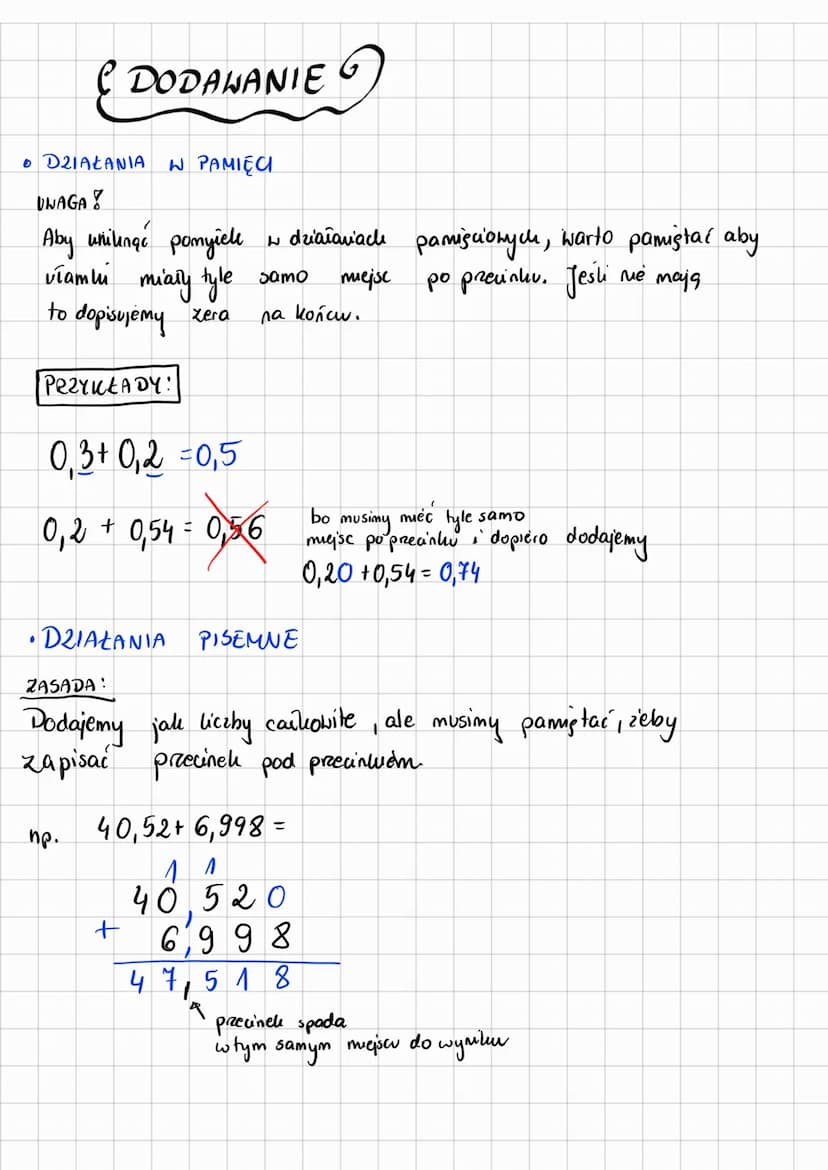 DODAWANIE
• DZIAŁANIA W PAMIĘCI
UWAGA!
Aby uniknąć pomyłek w działaniach pamięciowych, warto pamiętać aby
ułamki miały tyle samo miejsc po przecinku. Jeśli nie mają
to dopisujemy zera na końcu.
PRZYKŁADY:
0,3 + 0,2 = 0,5
0,2 + 0,54 = 0,56
bo musimy mieć tyle samo
miejsc po przecinku i dopiero dodajemy
0,20 + 0,54 = 0,74
• DZIAŁANIA PISEMNE
ZASADA:
Dodajemy jak liczby całkowite, ale musimy pamiętać, żeby
zapisać przecinek pod przecinkiem.
np. 40,52 + 6,998 =
1 1
40,520
+ 6,998
47,518
przecinek spada
w tym samym miejscu do wyniku